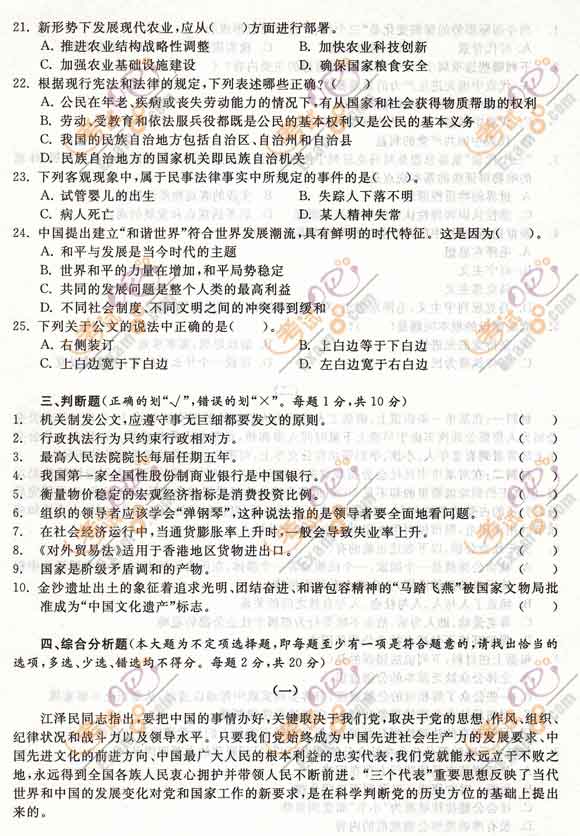 21. 新形势下发展现代农业,应从(    )方面进行部署。
A. 推进农业结构战略性调整    B. 加快农业科技创新
C. 加强农业基础设施建设    D. 确保国家粮食安全
22. 根据现行宪法和法律的规定,下列表述哪些正确?(    )
A. 公民在年老、疾病或丧失劳动能力的情况下,有从国家和社会获得物质帮助的权利
B. 劳动、受教育和依法服兵役都既是公民的基本权利又是公民的基本义务
C. 我国的民族自治地方包括自治区、自治州和自治县
D. 民族自治地方的国家机关即民族自治机关
23. 下列客观现象中,属于民事法律事实中所规定的事件的是(    )。
A. 试管婴儿的出生    B. 失踪人下落不明
C. 病人死亡    D. 某人精神失常
24. 中国提出建立“和谐世界”符合世界发展潮流,具有鲜明的时代特征。这是因为(    )。
A. 和平与发展是当今时代的主题
B. 世界和平的力量在增加,和平局势稳定
C. 共同的发展问题是整个人类的最高利益
D. 不同社会制度、不同文明之间的冲突得到缓和
25. 下列关于公文的说法中正确的是(    )。
A. 右侧装订    B. 上白边等于下白边
C. 上白边宽于下白边    D. 左白边宽于右白边
三、判断题(正确的划“√”,错误的划“×”。每题1分,共10分)
1. 机关制发公文,应遵守事无巨细都要发文的原则。 (    )
2. 行政执法行为只约束行政相对方。 (    )
3. 最高人民法院院长每届任期五年。 (    )
4. 我国第一家全国性股份制商业银行是中国银行。 (    )
5. 衡量物价稳定的宏观经济指标是消费投资比例。 (    )
6. 组织的领导者应该学会“弹钢琴”,这种说法指的是领导者要全面地看问题。 (    )
7. 在社会经济运行中,当通货膨胀率上升时,一般会导致失业率上升。 (    )
8. 《对外贸易法》适用于香港地区货物进出口。 (    )
9. 国家是阶级矛盾调和的产物。 (    )
10. 金沙遗址出土的象征着追求光明、团结奋进、和谐包容精神的“马踏飞燕”被国家文物局批
准成为“中国文化遗产”标志。 (    )
四、综合分析题(本大题为不定项选择题,即每题至少有一项是符合题意的,请找出恰当的
选项,多选、少选、错选均不得分。每题2分,共20分)
(一)
江泽民同志指出,要把中国的事情办好,关键取决于我们党,取决于党的思想、作风、组织、
纪律状况和战斗力以及领导水平。只要我们党始终成为中国先进社会生产力的发展要求、中
国先进文化的前进方向、中国最广大人民的根本利益的忠实代表,我们党就能永远立于不败之
地,永远得到全国各族人民衷心拥护并带领人民不断前进。“三个代表”重要思想反映了当代
世界和中国的发展变化对党和国家工作的新要求,是在科学判断党的历史方位的基础上提出
来的。